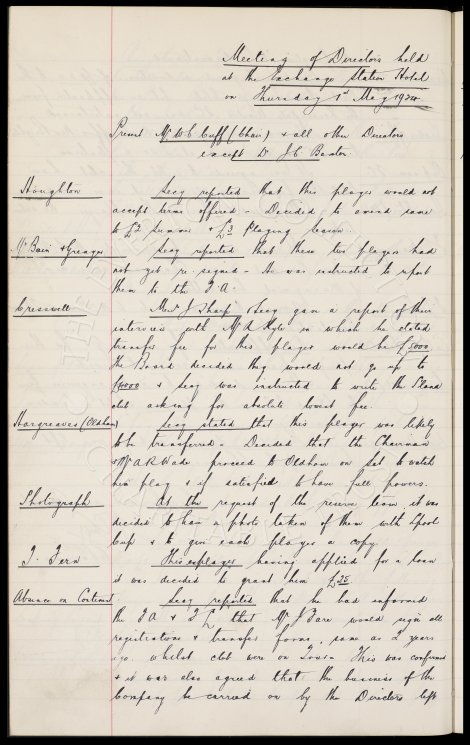 Meeting of Directors held
at the Exchange Station Hotel
on Thursday 1st May 1924
Present Mr W.C. Cuff (Chair) & all other Directors
except Dr J.C. Baxter
Houghton
Secy reported that this player would not
accept terms offered - Decided to amend same
to £5 Summer & £3 Playing season.
McBain & Grenyer
Secy reported that these two players had
not yet re-signed - He was instructed to report
them to the F.A.
Cresswell
Messrs J Sharp & Secy gave a report of their
interview with Mr R Kyle in which he stated
transfer fee for this player would be £5000.
The Board decided they would not go up to
& Secy was instructed to write the S'land
club asking for absolute lowest fee.
Hargreaves (Oldham)
Secy stated that this player was likely
to be transferred - Decided that the Chairman
& Mr A R Wade proceed to Oldham on Sat to watch
him play & if satisfied to have full powers.
Photograph
At the request of the reserve team it was
decided to have a photo taken of them with L'pool
Cup & to give each player a copy.
T. Fern
This explayer having applied for a loan
it was decided to grant him £25.
Absence on Continent.
Secy reported that he had informed
the FA & F L that Mr J Fare would sign all
registrations & transfer forms, same as 3 years
ago. whilst club were on Tour. This was confirmed
& it was also agreed that the business of the
Company be carried on by the Directors left